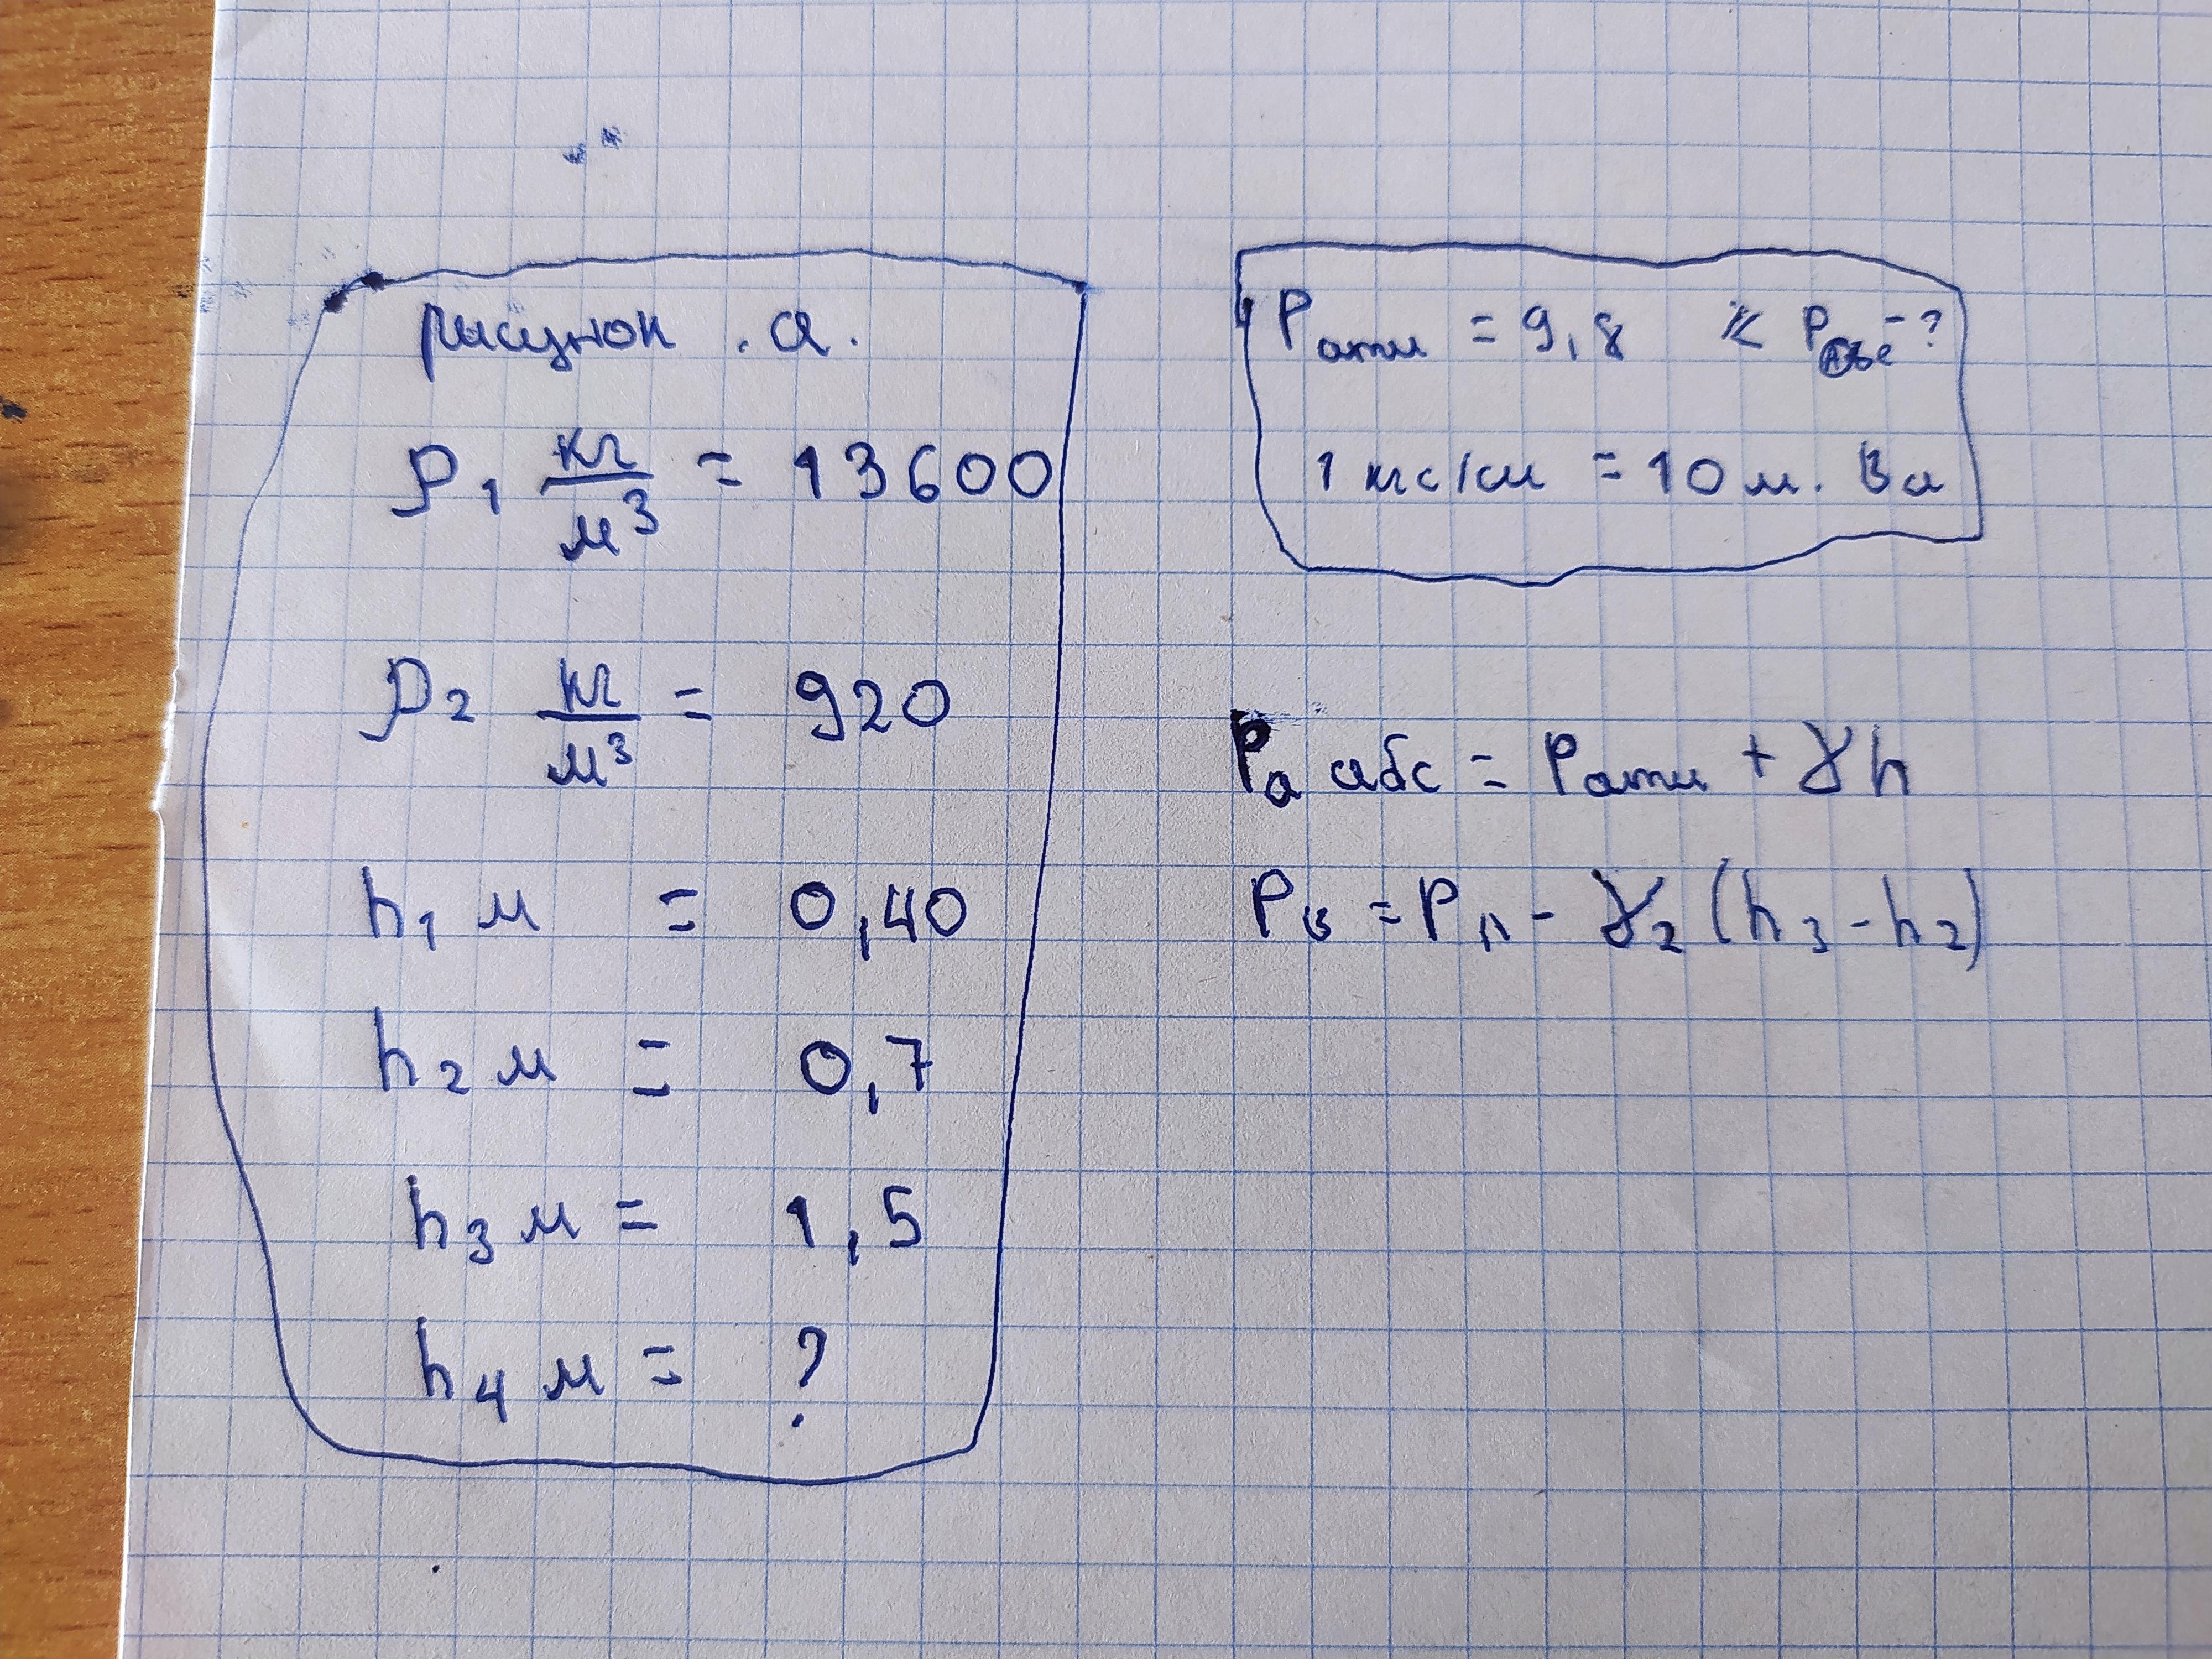 рисунок .а.
ρ₁ кг/м³ = 13600
ρ₂ кг/м³ = 920
h₁ м = 0,40
h₂ м = 0,7
h₃ м = 1,5
h₄ м = ?
Pатм = 9,8 Pабс - ?
1 кгс/см = 10 м. Ва
Pа абс = Pатм + γh
Pв = Pп - γ₂ (h₃ - h₂)